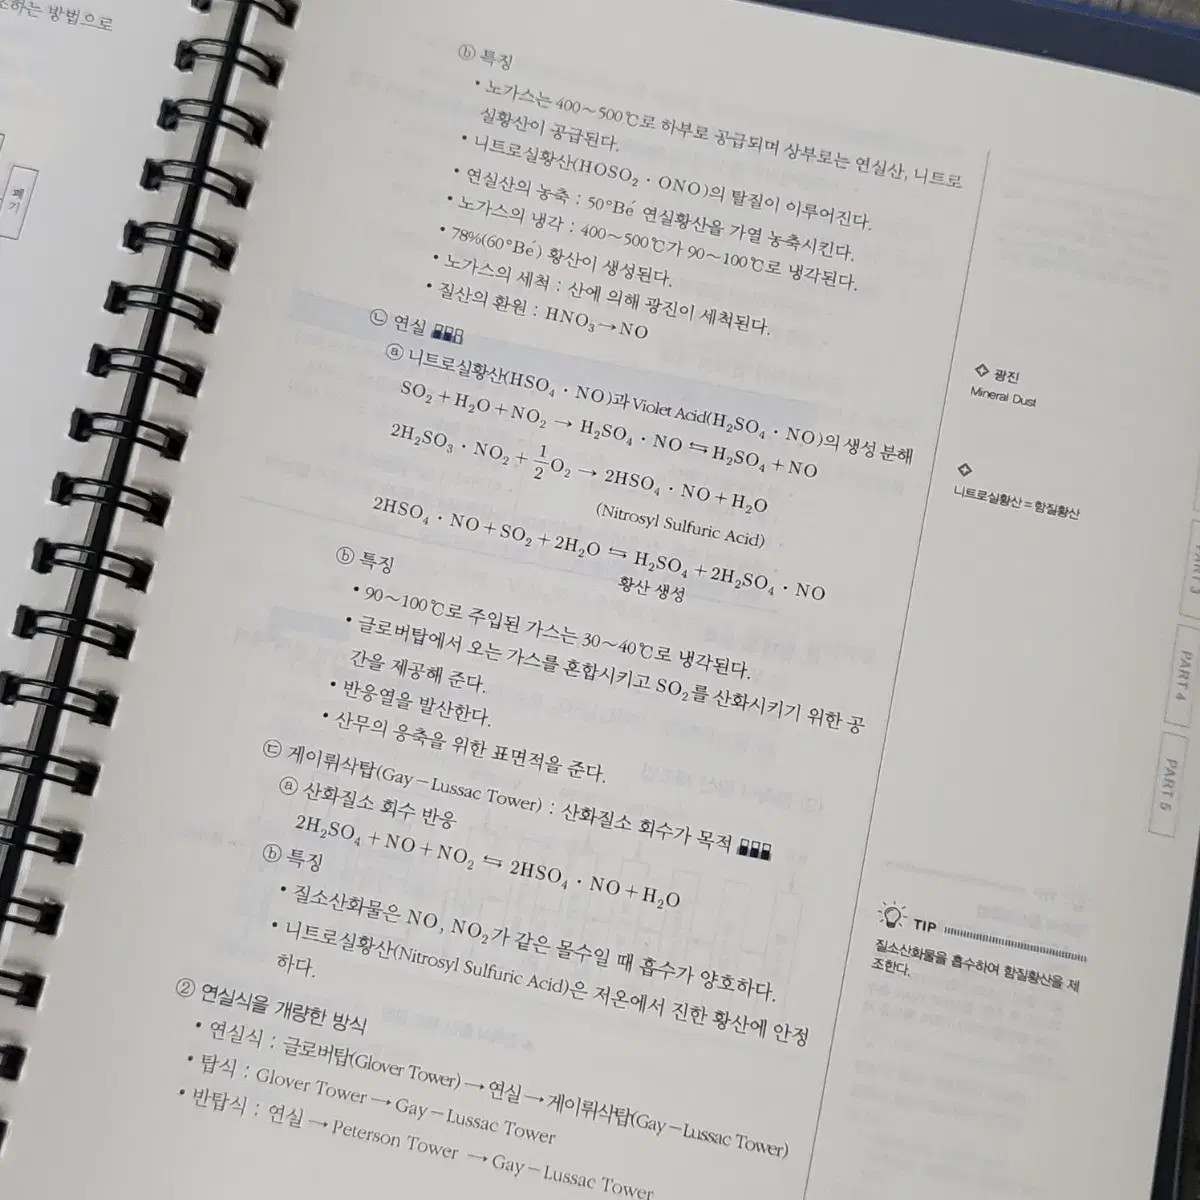 하는 방법으로
폐기
ⓑ 특징
• 노가스는 400~500℃로 하부로 공급되며 상부로는 연실산, 니트로
실황산이 공급된다.
• 니트로실황산(HOSO₂ · ONO)의 탈질이 이루어진다.
• 연실산의 농축 : 50°Bé 연실황산을 가열 농축시킨다.
• 노가스의 냉각 : 400~500℃가 90~100℃로 냉각된다.
• 78%(60°Bé) 황산이 생성된다.
• 노가스의 세척 : 산에 의해 광진이 세척된다.
• 질산의 환원 : HNO₃→NO
㉡ 연실
ⓐ 니트로실황산(HSO₄ · NO)과 Violet Acid(H₂SO₄ · NO)의 생성 분해
SO₂+H₂O+NO₂ → H₂SO₄ · NO ⇆ H₂SO₄+NO
2H₂SO₃ · NO₂+1/2O₂ → 2HSO₄ · NO+H₂O
(Nitrosyl Sulfuric Acid)
2HSO₄ · NO+SO₂+2H₂O ⇆ H₂SO₄+2H₂SO₄ · NO
황산 생성
ⓑ 특징
• 90~100℃로 주입된 가스는 30~40℃로 냉각된다.
• 글로버탑에서 오는 가스를 혼합시키고 SO₂를 산화시키기 위한 공
간을 제공해 준다.
• 반응열을 발산한다.
• 산무의 응축을 위한 표면적을 준다.
㉢ 게이뤼삭탑(Gay-Lussac Tower) : 산화질소 회수가 목적
ⓐ 산화질소 회수 반응
2H₂SO₄+NO+NO₂ ⇆ 2HSO₄ · NO+H₂O
ⓑ 특징
• 질소산화물은 NO, NO₂가 같은 몰수일 때 흡수가 양호하다.
• 니트로실황산(Nitrosyl Sulfuric Acid)은 저온에서 진한 황산에 안정
하다.
② 연실식을 개량한 방식
• 연실식 : 글로버탑(Glover Tower) → 연실 → 게이뤼삭탑(Gay-Lussac Tower)
• 탑식 : Glover Tower → Gay-Lussac Tower
• 반탑식 : 연실 → Peterson Tower → Gay-Lussac Tower
◇ 광진
Mineral Dust
◇
니트로실황산=함질황산
TIP
질소산화물을 흡수하여 함질황산을 제
조한다.
PART 3
PART 4
PART 5